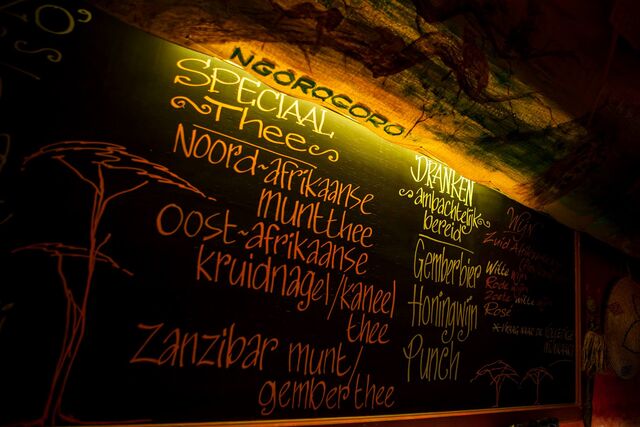 NGOROGORO
SPECIAAL
Thee
Noord-afrikaanse
muntthee
Oost-afrikaanse
kruidnagel/kaneel
thee
Zanzibar munt/
gemberthee
DRANKEN
ambachtelijk
bereid
Gemberbier
Honingwijn
Punch
Wijn
Zuid
Witte
Rode
Zoete witte
Rosé